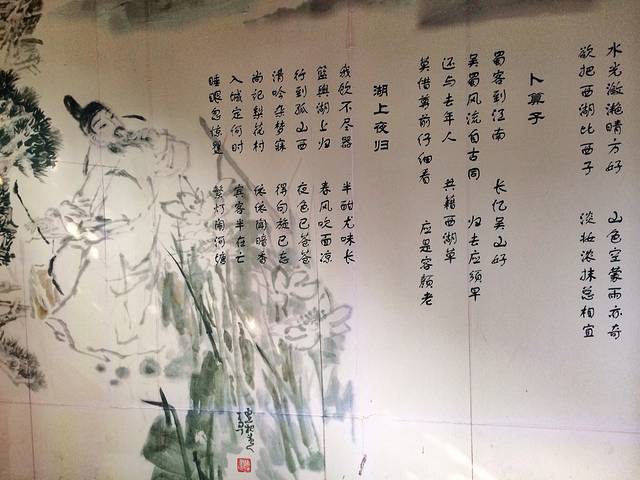 水光潋滟晴方好 山色空蒙雨亦奇
欲把西湖比西子 淡妆浓抹总相宜
卜算子
蜀客到江南 长亿吴山好
吴蜀风流自古同 归去应须早
还与去年人 共籍西湖草
莫借剪前仔细看 应是容颜老
湖上夜归
我饮不尽器 半酣尤味长
篮舆湖上归 春风吹面凉
行到孤山西 夜色已苍苍
清吟杂梦寐 得句旋已忘
尚记梨花村 依依闻暗香
入城定何时 宾客半在亡
睡眼忽惊矍 繁灯闹河塘